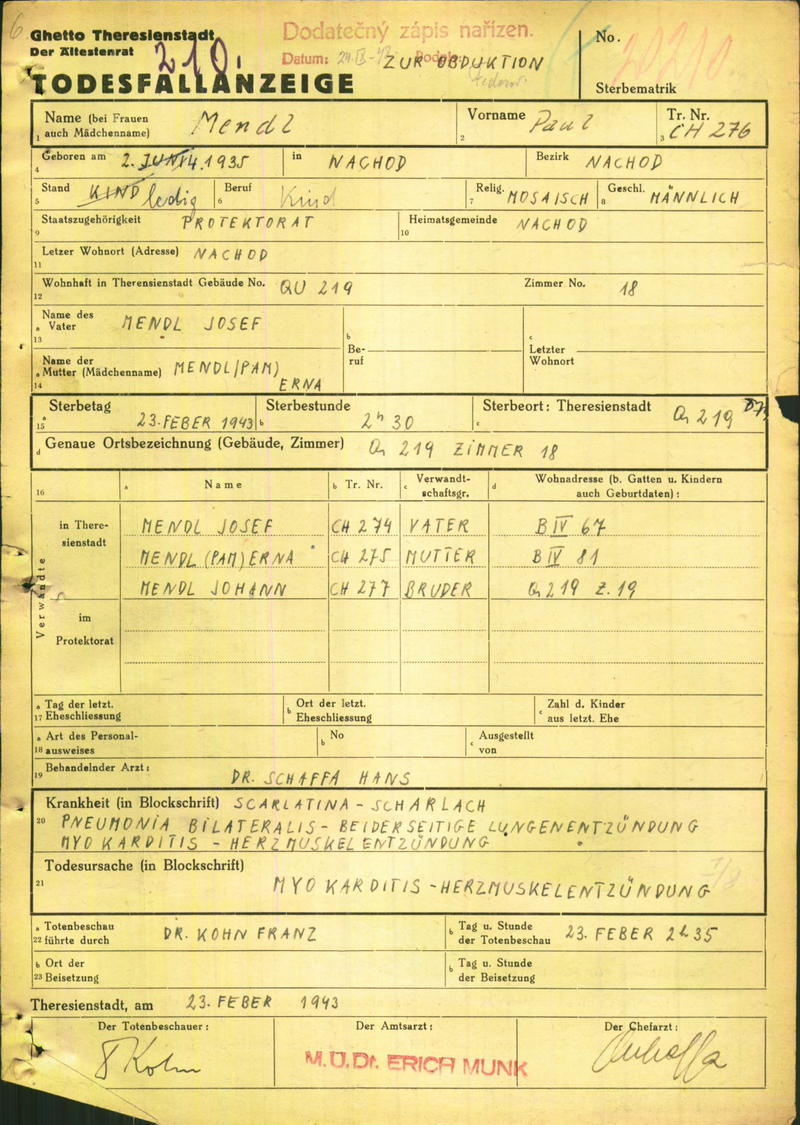 6
Ghetto Theresienstadt
Der Ältestenrat
210.
Dodatečný zápis nařízen.
Datum: Podpis:
ZUR OBDUKTION
No. 20210
TODESFALLANZEIGE
Sterbematrik
1 Name (bei Frauen auch Mädchenname) Mendl
2 Vorname Paul
3 Tr. Nr. CH 276
4 Geboren am 2. JUNI 4. 1935 in NACHOD Bezirk NACHOD
5 Stand KIND ledig
6 Beruf Kind
7 Relig. MOSAISCH
8 Geschl. MÄNNLICH
9 Staatszugehörigkeit PROTEKTORAT
10 Heimatsgemeinde NACHOD
11 Letzer Wohnort (Adresse) NACHOD
12 Wohnhaft in Theresienstadt Gebäude No. QU 219 Zimmer No. 18
13 a Name des Vater MENDL JOSEF
b Beruf
c Letzter Wohnort
14 a Name der Mutter (Mädchenname) MENDL (PAM) ERNA
15 a Sterbetag 23. FEBER 1943
b Sterbestunde 2h 30
c Sterbeort: Theresienstadt Q 219
d Genaue Ortsbezeichnung (Gebäude, Zimmer) Q 219 ZIMMER 18
16 a Name b Tr. Nr. c Verwandtschaftsgr. d Wohnadresse (b. Gatten u. Kindern auch Geburtdaten):
Verwandte
in Theresienstadt
MENDL JOSEF CH 274 VATER B IV 67
MENDL (PAM) ERNA CH 275 MUTTER B IV 81
MENDL JOHANN CH 277 BRUDER Q 219 Z. 19
im Protektorat
17 a Tag der letzt. Eheschliessung
b Ort der letzt. Eheschliessung
c Zahl d. Kinder aus letzt. Ehe
18 a Art des Personalausweises
b No
c Ausgestellt von
19 Behandelnder Arzt: DR. SCHAFFA HANS
20 Krankheit (in Blockschrift) SCARLATINA - SCHARLACH
PNEUMONIA BILATERALIS - BEIDERSEITIGE LUNGENENTZÜNDUNG
MYOKARDITIS - HERZMUSKELENTZÜNDUNG
21 Todesursache (in Blockschrift)
MYOKARDITIS - HERZMUSKELENTZÜNDUNG
22 a Totenbeschau führte durch DR. KOHN FRANZ
b Tag u. Stunde der Totenbeschau 23. FEBER 2h 35
23 b Ort der Beisetzung
b Tag u. Stunde der Beisetzung
Theresienstadt, am 23. FEBER 1943
Der Totenbeschauer: Der Amtsarzt: Der Chefarzt:
F Kohn
M.U.Dr. ERICH MUNK